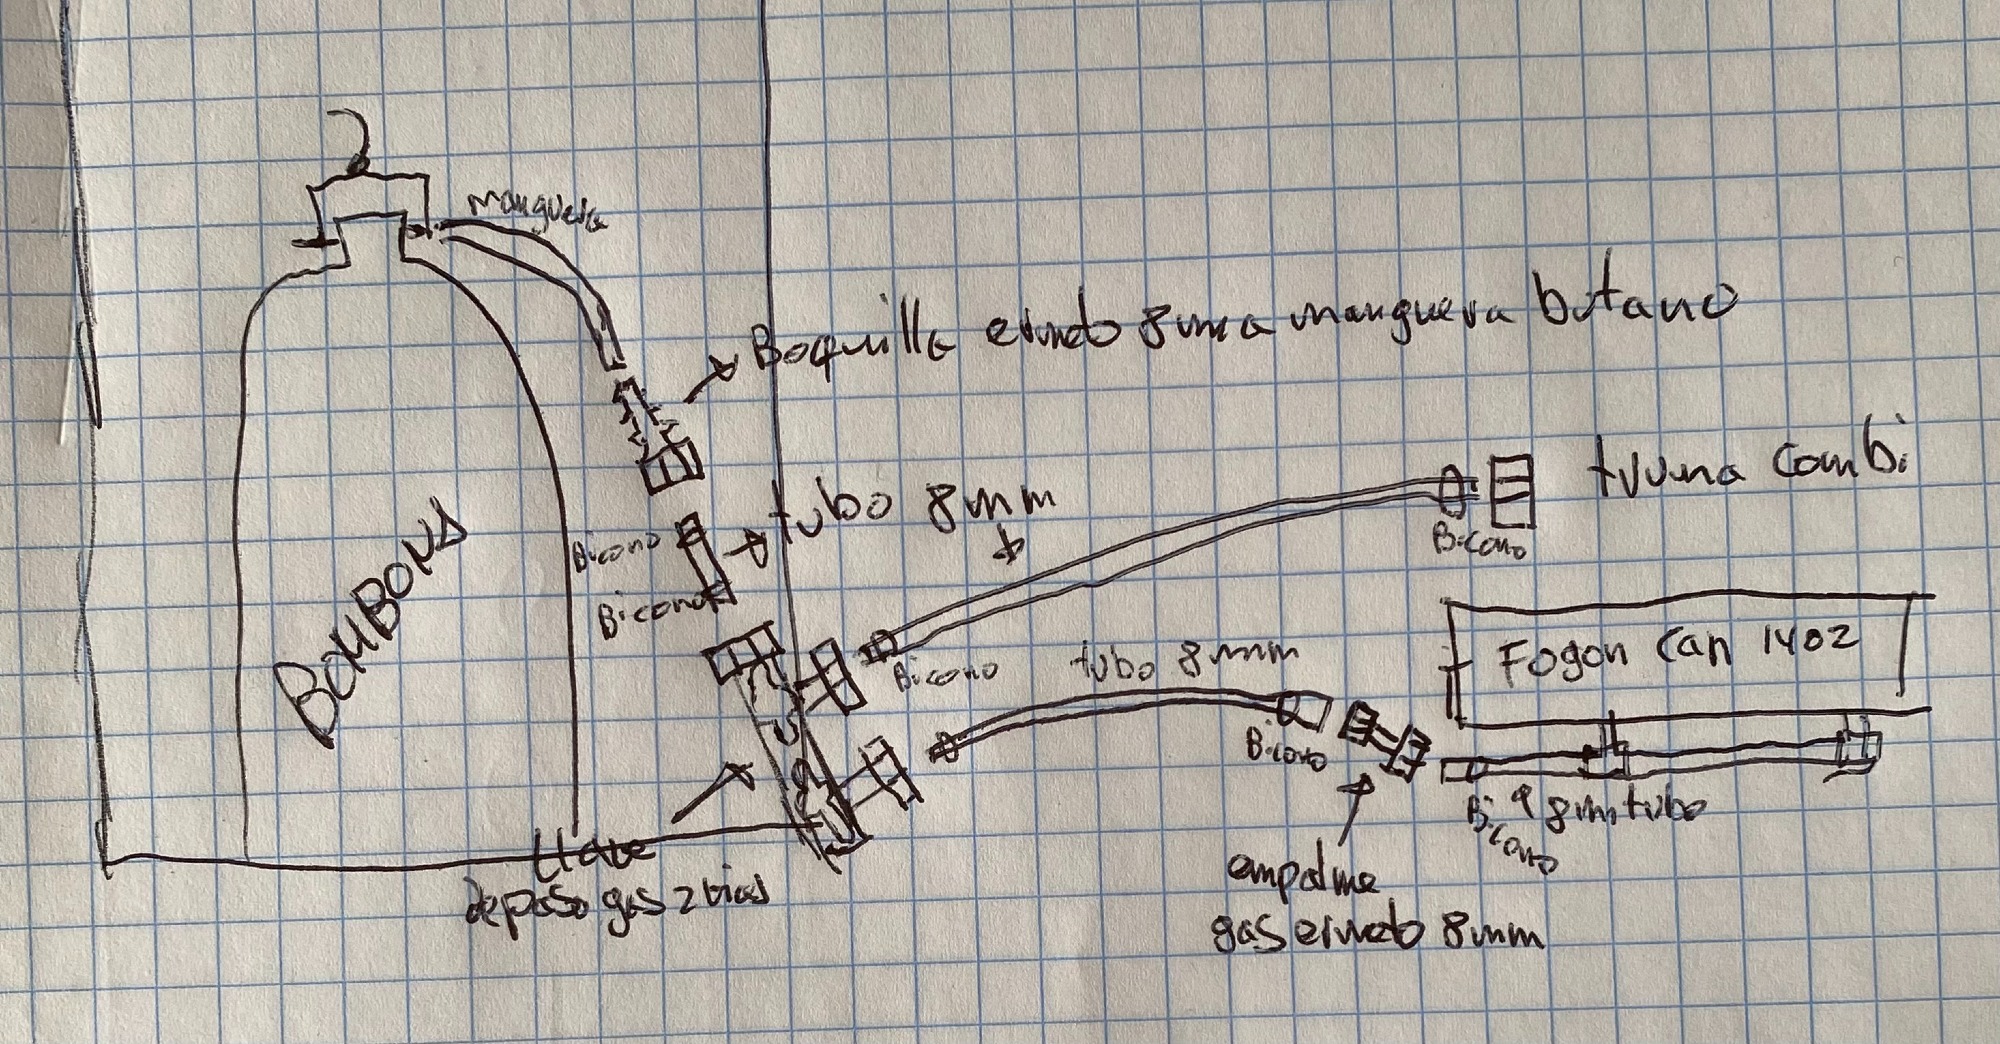 manguera
Boquilla ermeto 8mm a manguera butano
truma combi
tubo 8mm
Bicono
Bicono
Bicono
Bicono
tubo 8mm
Bicono
Fogon Can 1402
BOMBONA
Bicono
8mm tubo
llave
de paso gas 2 vias
empalme
gas ermeto 8mm